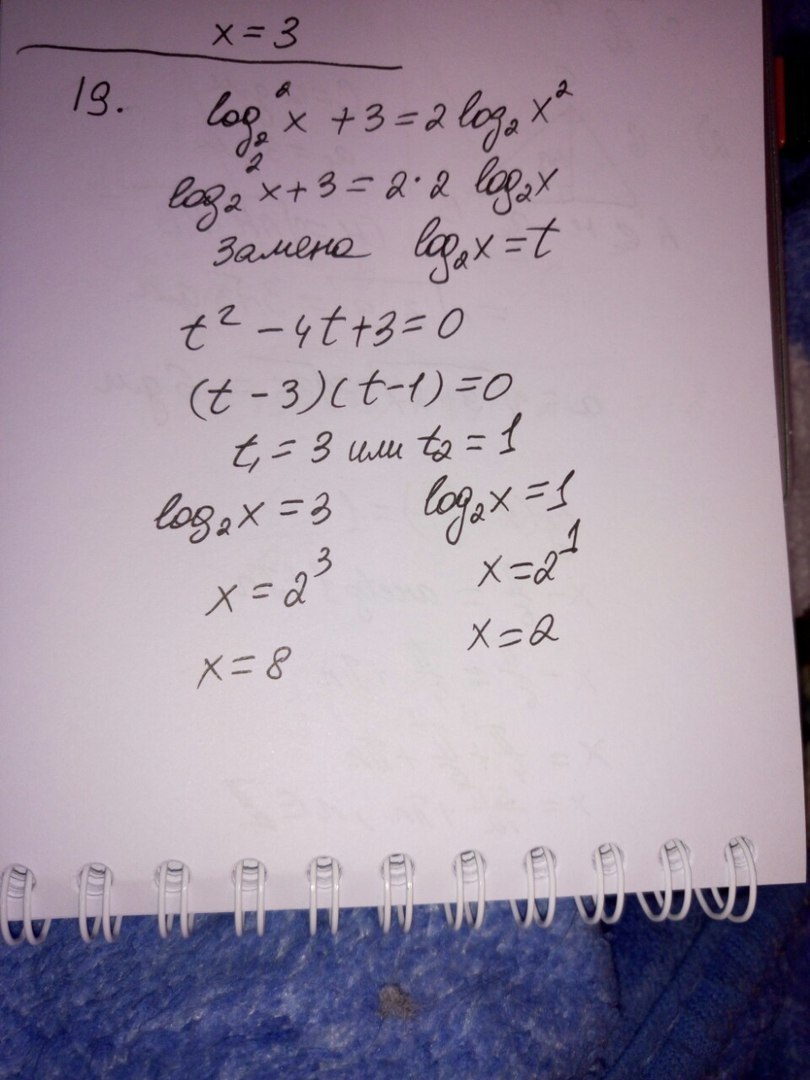 x = 3
19.
log₂² x + 3 = 2 log₂ x²
log₂² x + 3 = 2 · 2 log₂ x
замена log₂ x = t
t² - 4t + 3 = 0
(t - 3)(t - 1) = 0
t₁ = 3 или t₂ = 1
log₂ x = 3 log₂ x = 1
x = 2³ x = 2¹
x = 8 x = 2